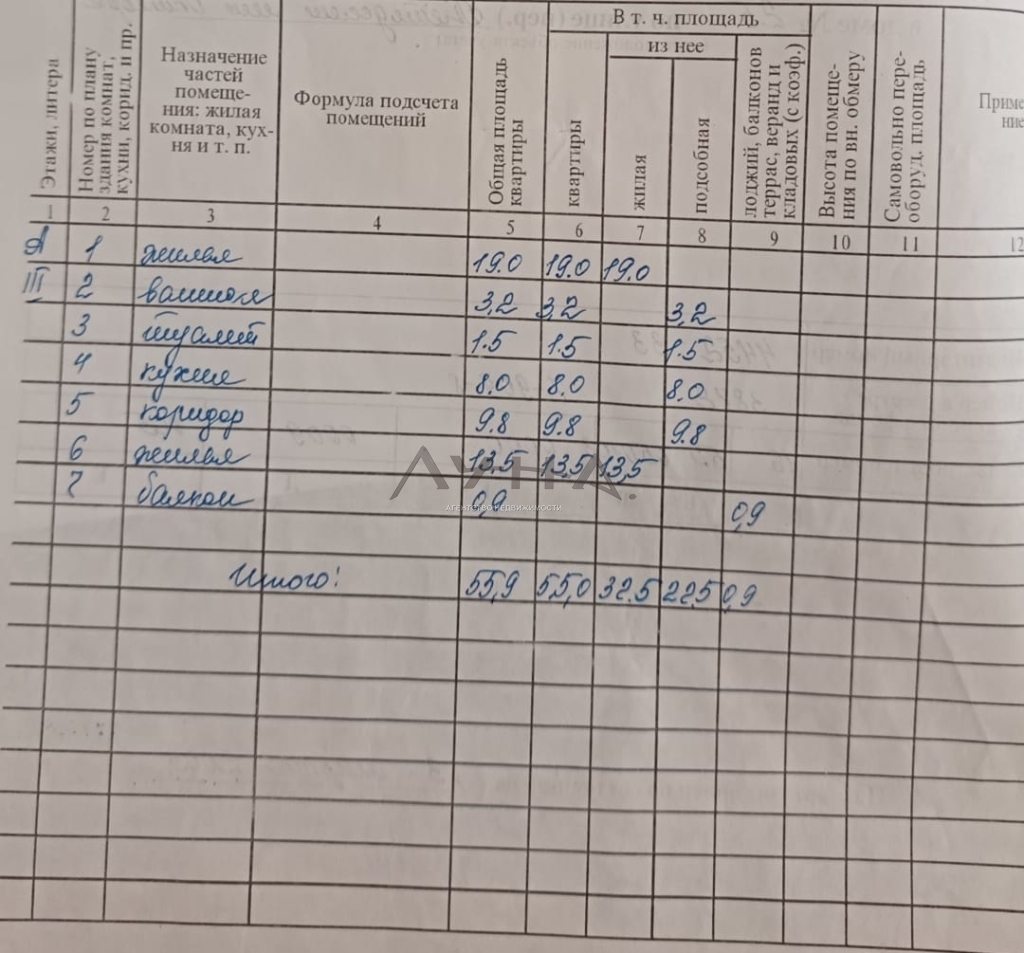 В т. ч. площадь
из нее
Этажи, литера
Номер по плану здания комнат, кухни, корид. и пр.
Назначение
частей
помеще-
ния: жилая
комната, кух-
ня и т. п.
Формула подсчета
помещений
Общая площадь
квартиры
квартиры
жилая
подсобная
лоджий, балконов
террас, веранд и
кладовых (с коэф.)
Высота помеще-
ния по вн. обмеру
Самовольно пере-
оборуд. площадь
Приме
ние
1 2 3 4 5 6 7 8 9 10 11 12
А 1 жилая 19.0 19.0 19.0
III 2 ванная 3,2 3,2 3,2
3 туалет 1.5 1.5 1.5
4 кухня 8.0 8.0 8.0
5 коридор 9.8 9.8 9.8
6 жилая 13,5 13,5 13,5
7 балкон 0,9 0,9
ЛУНА.
Агентство недвижимости
Итого: 55,9 55,0 32.5 22.5 0,9